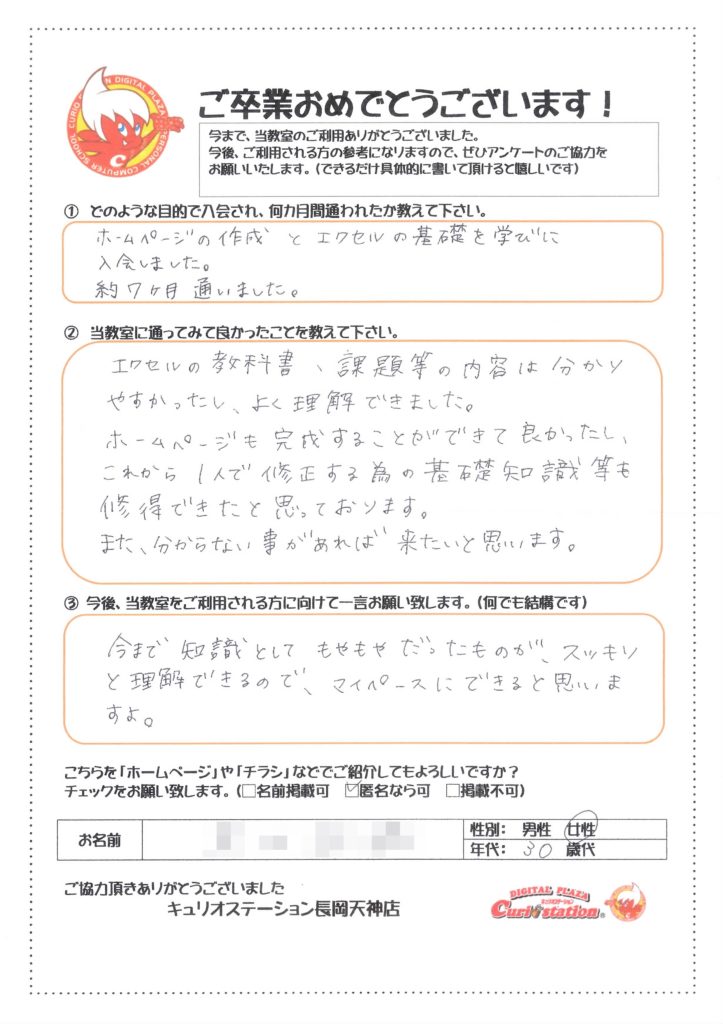 CURIO STATION DIGITAL PLAZA PERSONAL COMPUTER SCHOOL
C
ご卒業おめでとうございます！
今まで、当教室のご利用ありがとうございました。
今後、ご利用される方の参考になりますので、ぜひアンケートのご協力を
お願いいたします。（できるだけ具体的に書いて頂けると嬉しいです）
① どのような目的で入会され、何カ月間通われたか教えて下さい。
ホームページの作成 と エクセルの基礎を学びに
入会しました。
約7ヶ月 通いました。
② 当教室に通ってみて良かったことを教えて下さい。
エクセルの教科書、課題等の内容は分かり
やすかったし、よく理解できました。
ホームページも完成することができて良かったし、
これから1人で修正する為の基礎知識等も
修得できたと思っております。
また、分からない事があれば来たいと思います。
③ 今後、当教室をご利用される方に向けて一言お願い致します。（何でも結構です）
今まで知識としてもやもやだったものが、スッキリ
と理解できるので、マイペースにできると思いま
すよ。
こちらを「ホームページ」や「チラシ」などでご紹介してもよろしいですか？
チェックをお願い致します。（□名前掲載可 ☑匿名なら可 □掲載不可）
お名前
性別： 男性 女性
年代： 30 歳代
ご協力頂きありがとうございました
キュリオステーション長岡天神店
DIGITAL PLAZA
キュリオステーション
Curio station®